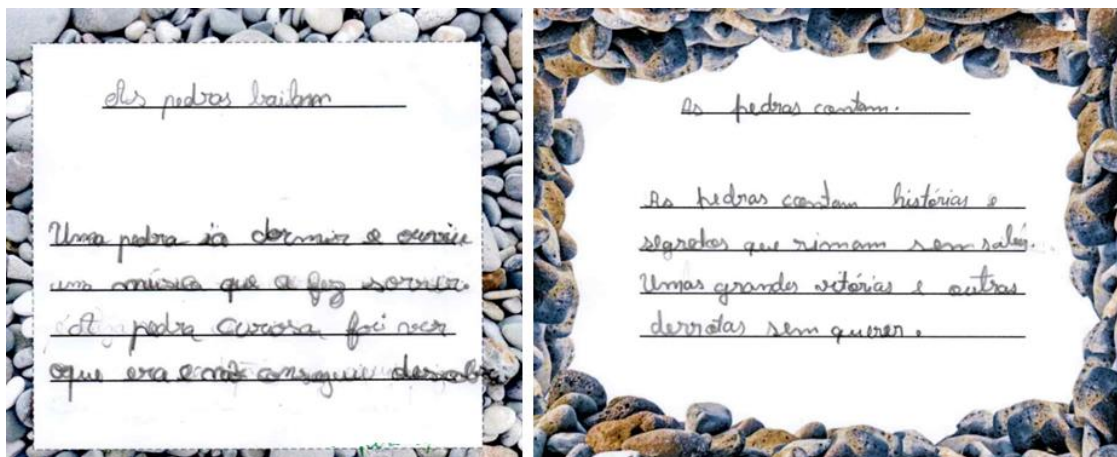 As pedras bailam
Uma pedra ia dormir e ouviu
uma música que a fez sorrir.
A pedra curiosa foi ver
oque era e não conseguiu descobrir
As pedras contam.
As pedras contam histórias e
segredos que rimam sem saber.
Umas grandes vitórias e outras
derrotas sem querer.